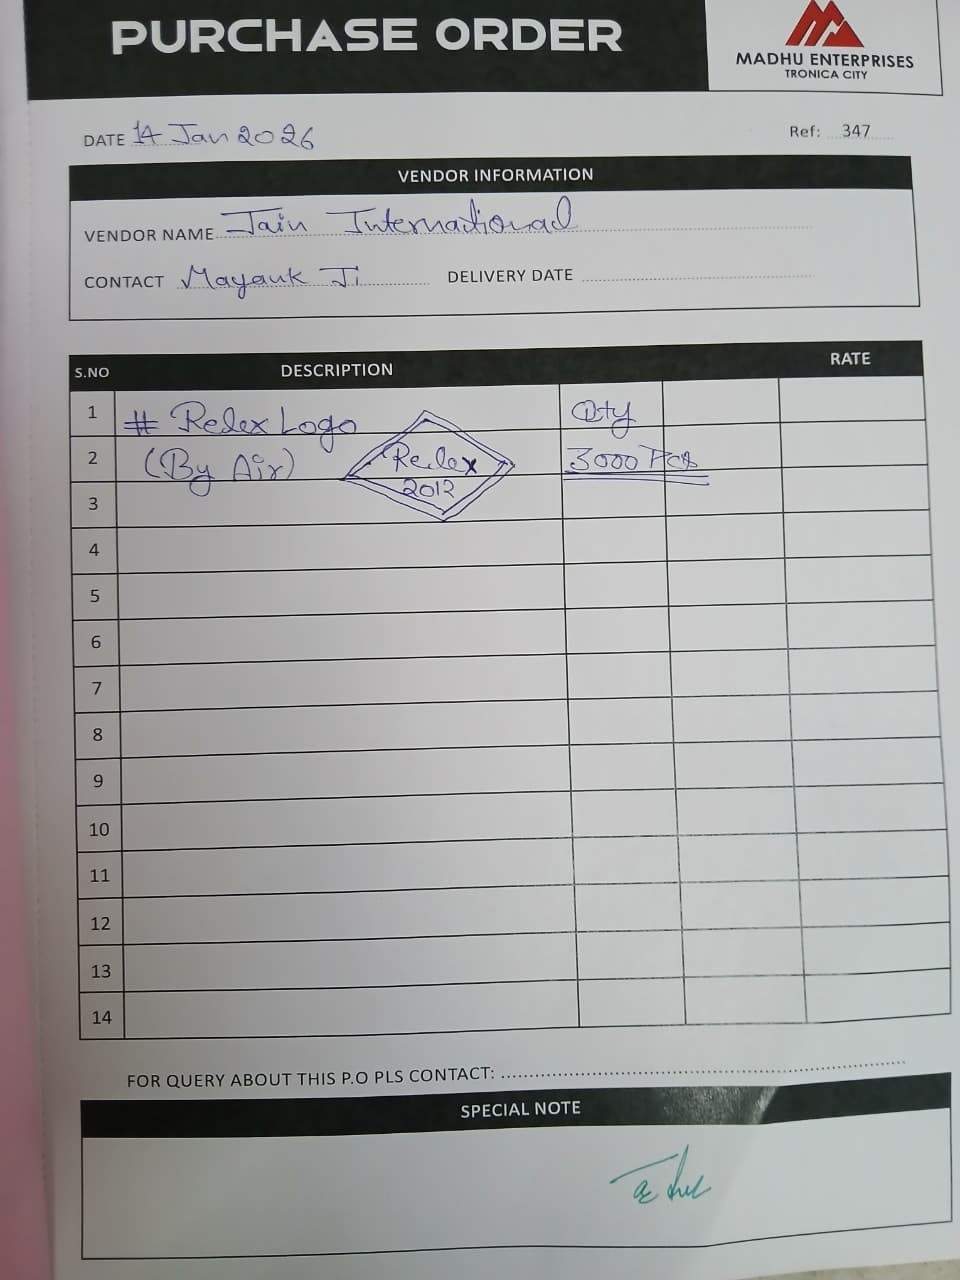 PURCHASE ORDER
MADHU ENTERPRISES
TRONICA CITY
DATE 14 Jan 2026
Ref: 347
VENDOR INFORMATION
VENDOR NAME Jain International
CONTACT Mayank Ji DELIVERY DATE
S.NO DESCRIPTION RATE
1 # Relex Logo Qty
2 (By Air) Relex 3000 Pcs
2012
3
4
5
6
7
8
9
10
11
12
13
14
FOR QUERY ABOUT THIS P.O PLS CONTACT:
SPECIAL NOTE